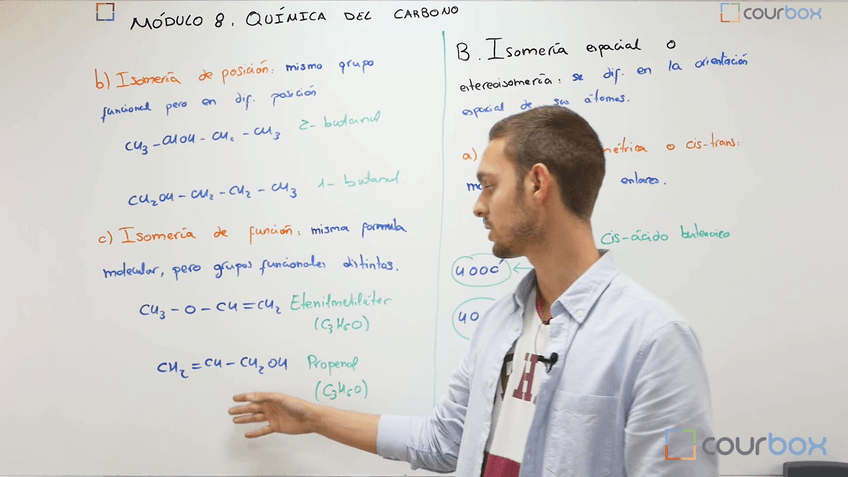 MÓDULO 8. QUÍMICA DEL CARBONO
courbox
b) Isomería de posición: mismo grupo
funcional pero en dif. posición
CH3 - CHOH - CH2 - CH3 2-butanol
CH2OH - CH2 - CH2 - CH3 1-butanol
c) Isomería de función: misma formula
molecular, pero grupos funcionales distintos.
CH3 - O - CH = CH2 Etenilmetiléter
(C3H6O)
CH2 = CH - CH2OH Propenol
(C3H6O)
B. Isomería espacial o
estereoisomería: se dif. en la orientación
espacial de sus átomos.
a) métrica o cis-trans:
enlaces.
cis-ácido butenoico
HOOC
HO
courbox